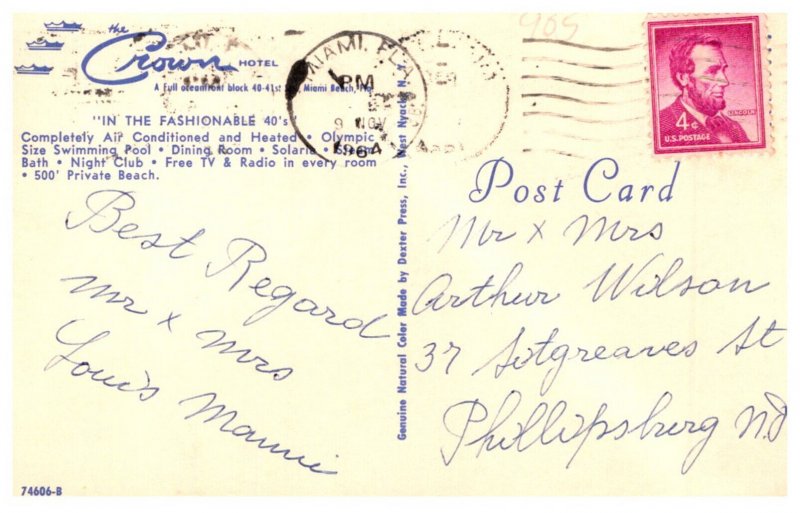 the
Crown HOTEL
A Full oceanfront block 40-41st Miami Beach,
"IN THE FASHIONABLE 40's"
Completely Air Conditioned and Heated • Olympic
Size Swimming Pool • Dining Room • Solaria • Steam
Bath • Night Club • Free TV & Radio in every room
• 500' Private Beach.
Best Regard
Mr x Mrs
Louis Mauui
74606-B
Genuine Natural Color Made by Dexter Press, Inc., West Nyack, N. Y.
MIAMI, FLA.
PM
9 NOV
1964
909
4¢
LINCOLN
U.S. POSTAGE
Post Card
Mr x Mrs
Arthur Wilson
37 Sitgreaves St
Phillipsburg NJ